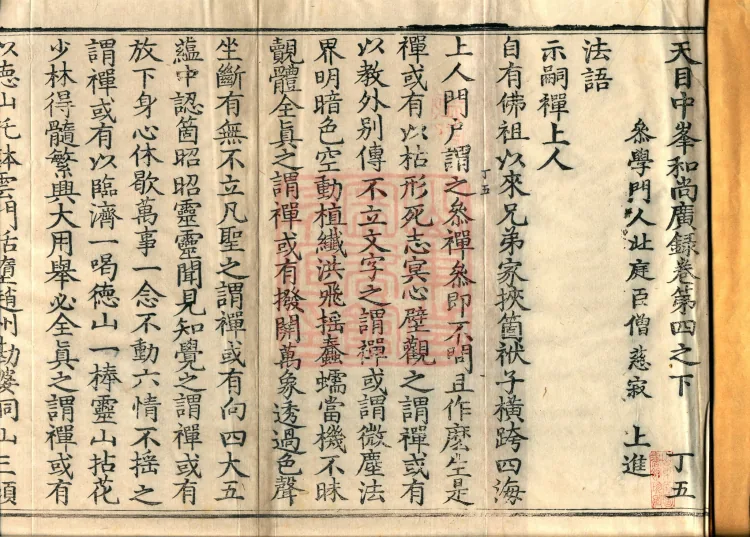 天目中峯和尚廣錄卷第四之下　丁五
參學門人北庭臣僧 慈寂 上進
法語
示嗣禪上人
自有佛祖以來兄弟家挾箇袱子橫跨四海
上人門戶謂之參禪參即不問且作麼生是
禪或有以枯形死志冥心壁觀之謂禪或有
以教外別傳不立文字之謂禪或謂微塵法
界明暗色空動植纖洪飛摇蠢蠕當機不昧
覿體全眞之謂禪或有撥開萬象透過色聲
坐斷有無不立凡聖之謂禪或有向四大五
蘊中認箇昭昭靈靈聞見知覺之謂禪或有
放下身心休歇萬事一念不動六情不摇之
謂禪或有以臨濟一喝德山一棒靈山拈花
少林得髓繁興大用舉必全眞之謂禪或有
以德山托鉢雲門話墮趙州勘婆洞山三頓
丁五